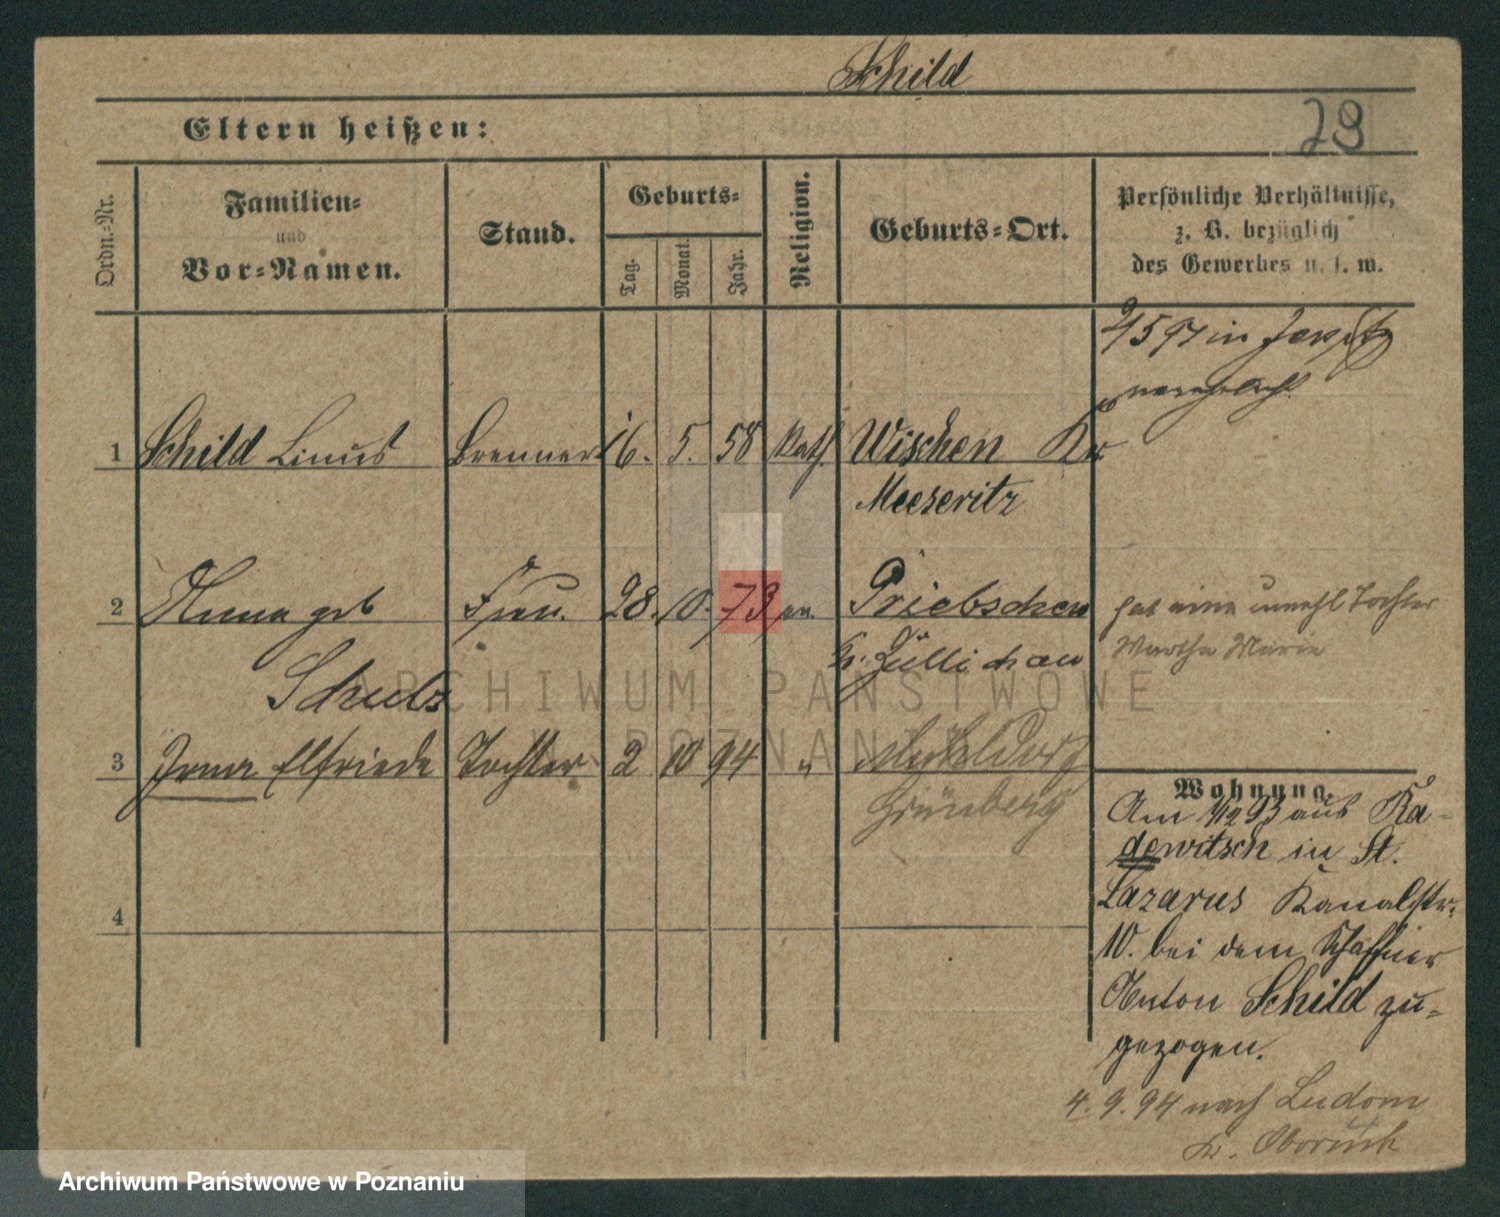 Schild
Eltern heißen:
Ordn.-Nr.
Familien-
und
Vor-Namen.
Stand.
Geburts-
Tag.
Monat.
Jahr.
Religion.
Geburts-Ort.
Persönliche Verhältnisse,
z. B. bezüglich
des Gewerbes u. s. w.
in
verehelicht
1 Schild Linus Brenner 16. 5. 58 kath. Wischen Kr
Meeseritz
2 Anna geb Frau. 28. 10. 73 ev. Priebschen
Schulz
Kr. Züllichau
hat eine unehl Tochter
Martha Marie
3 Irma Elfriede Tochter 2 10 94 "
Grünberg
Wohnung.
Am 1/12 93 aus Ka-
dewitsch in St.
Lazarus Kanalstr.
10. bei dem Schaffner
Anton Schild zu-
gezogen.
4
4. 9. 94 nach Ludom
Kr. Obornik
ARCHIWUM PAŃSTWOWE
W POZNANIU
Archiwum Państwowe w Poznaniu